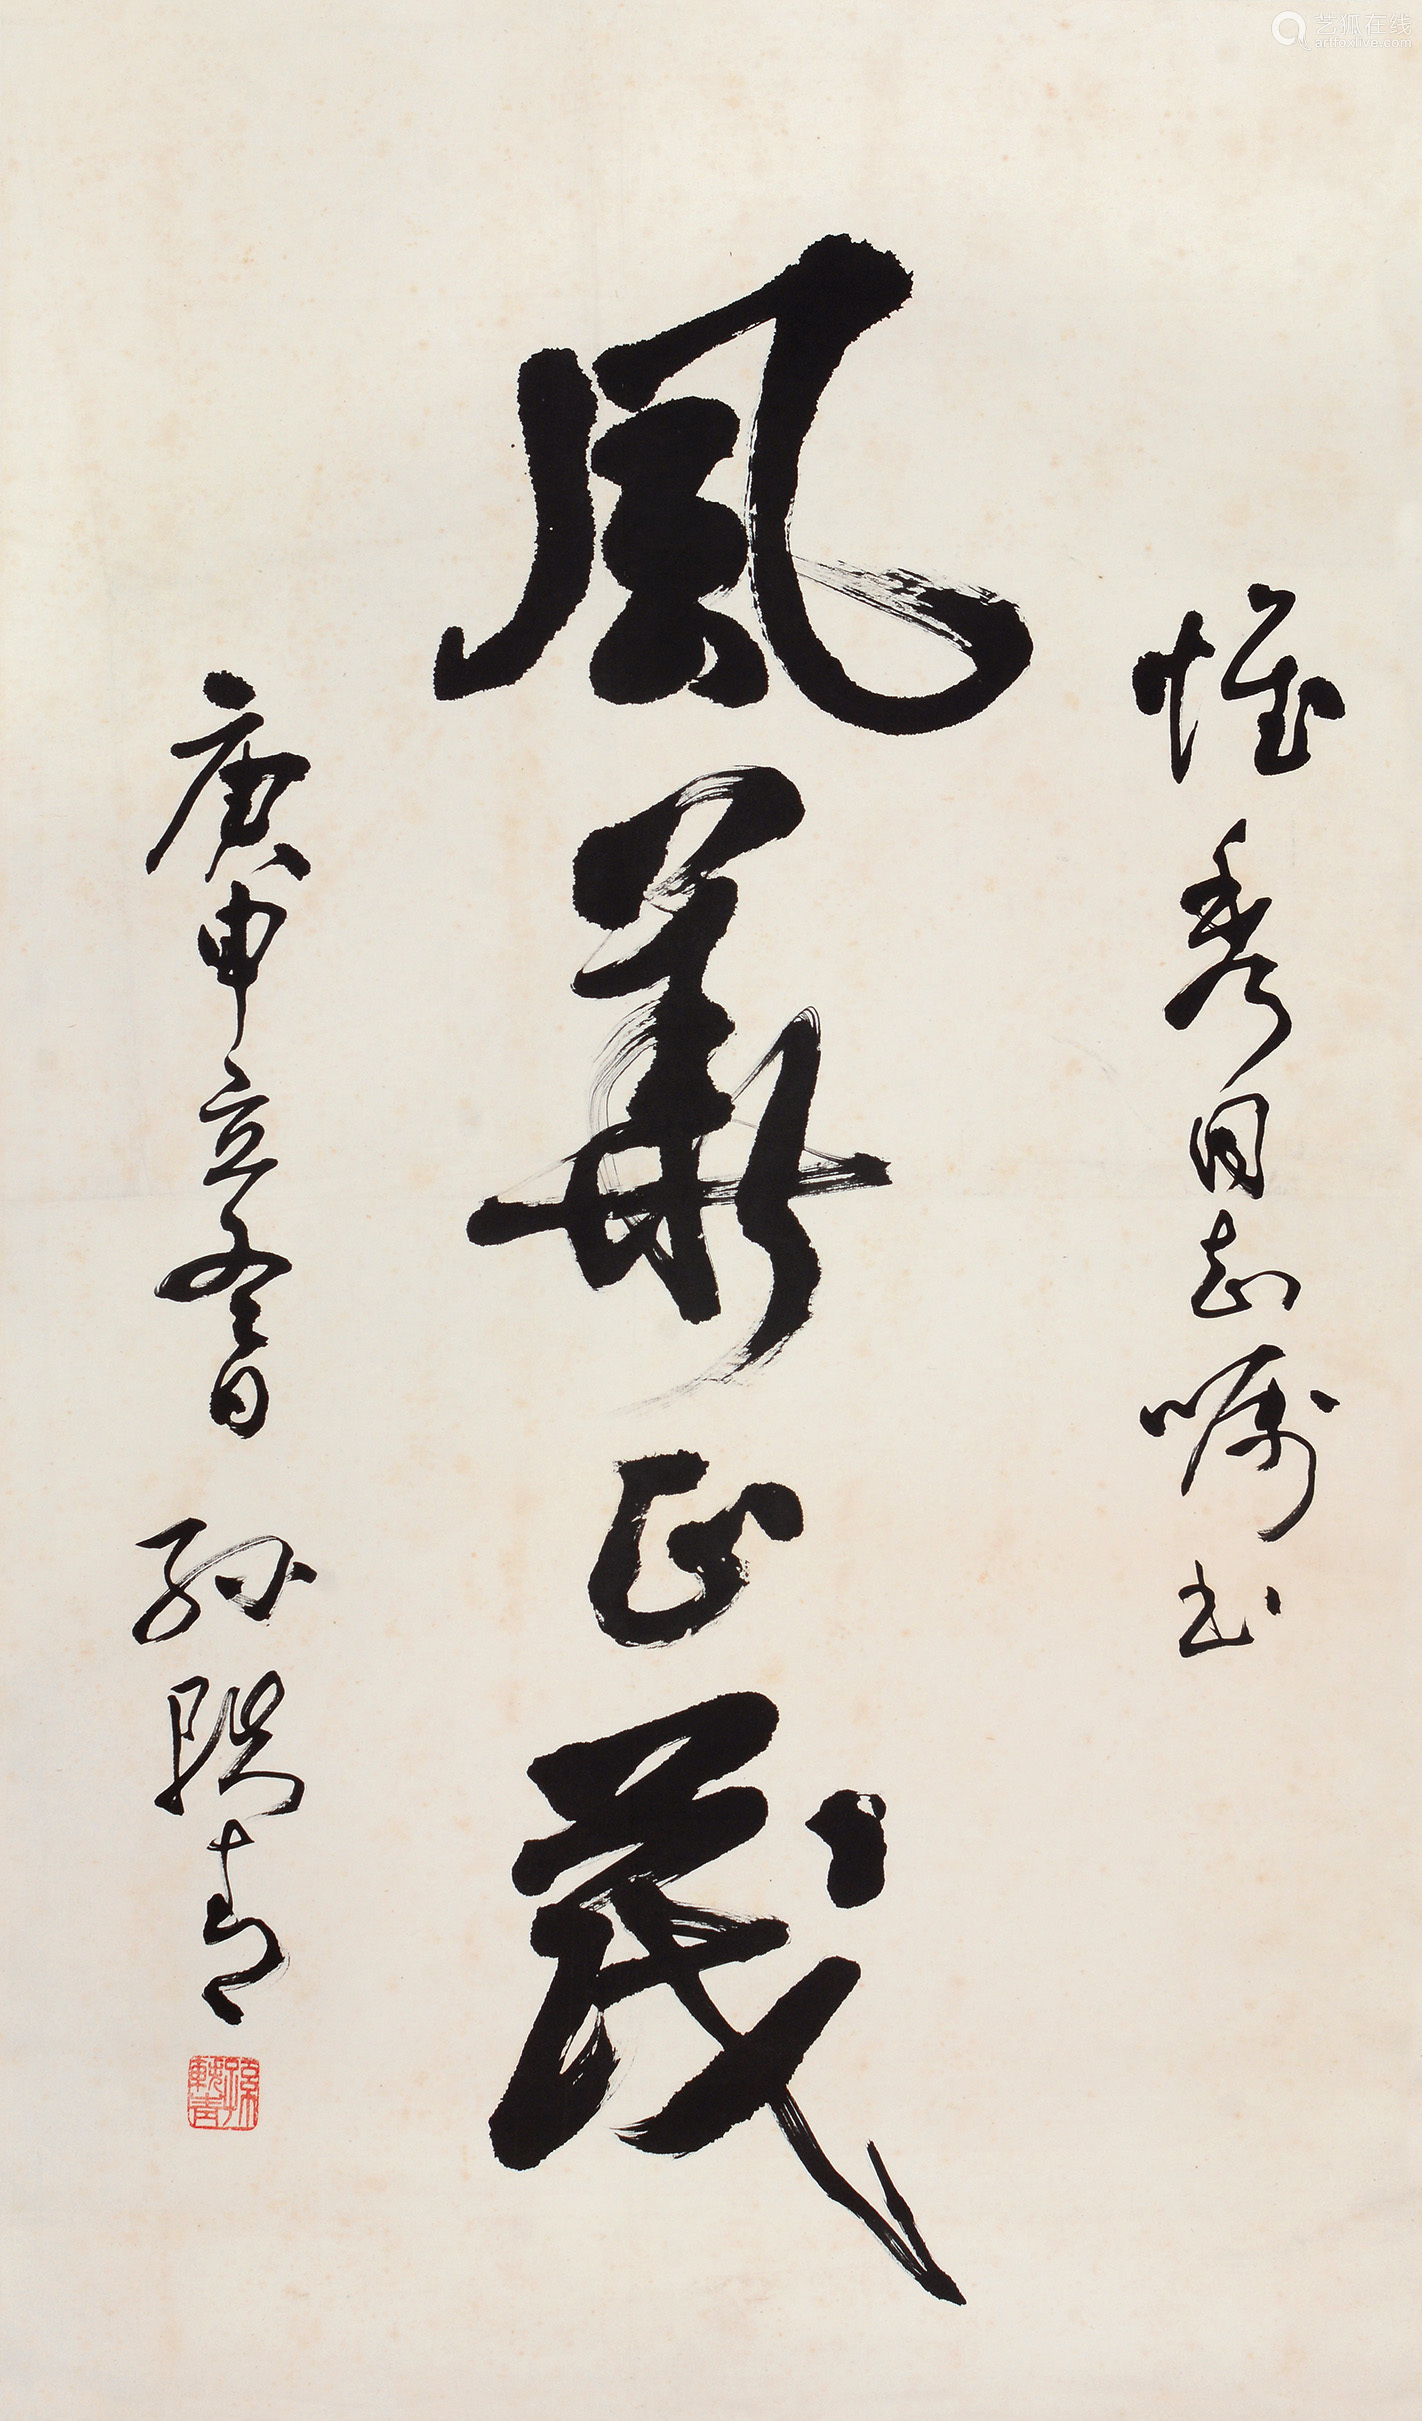 惟秀同志嘱书
風華正茂
庚申立冬日 孙轶青
孫軼青
艺狐在线
artfoxlive.com